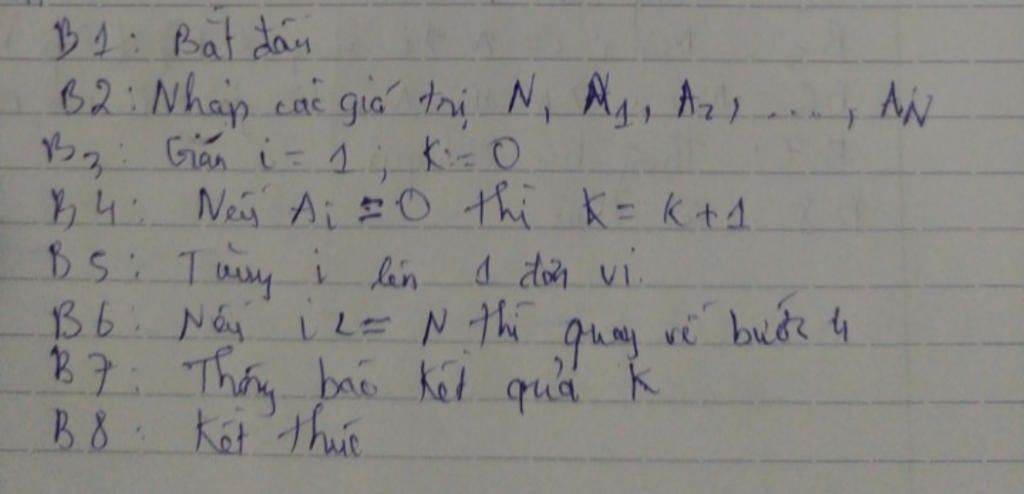 B1: Bắt đầu
B2: Nhập các giá trị N, A1, A2, ...., AN
B3: Gán i = 1, K = 0
B4: Nếu Ai = 0 thì K = K + 1
B5: Tăng i lên 1 đơn vị.
B6: Nếu i <= N thì quay về bước 4
B7: Thông báo kết quả K
B8: Kết thúc